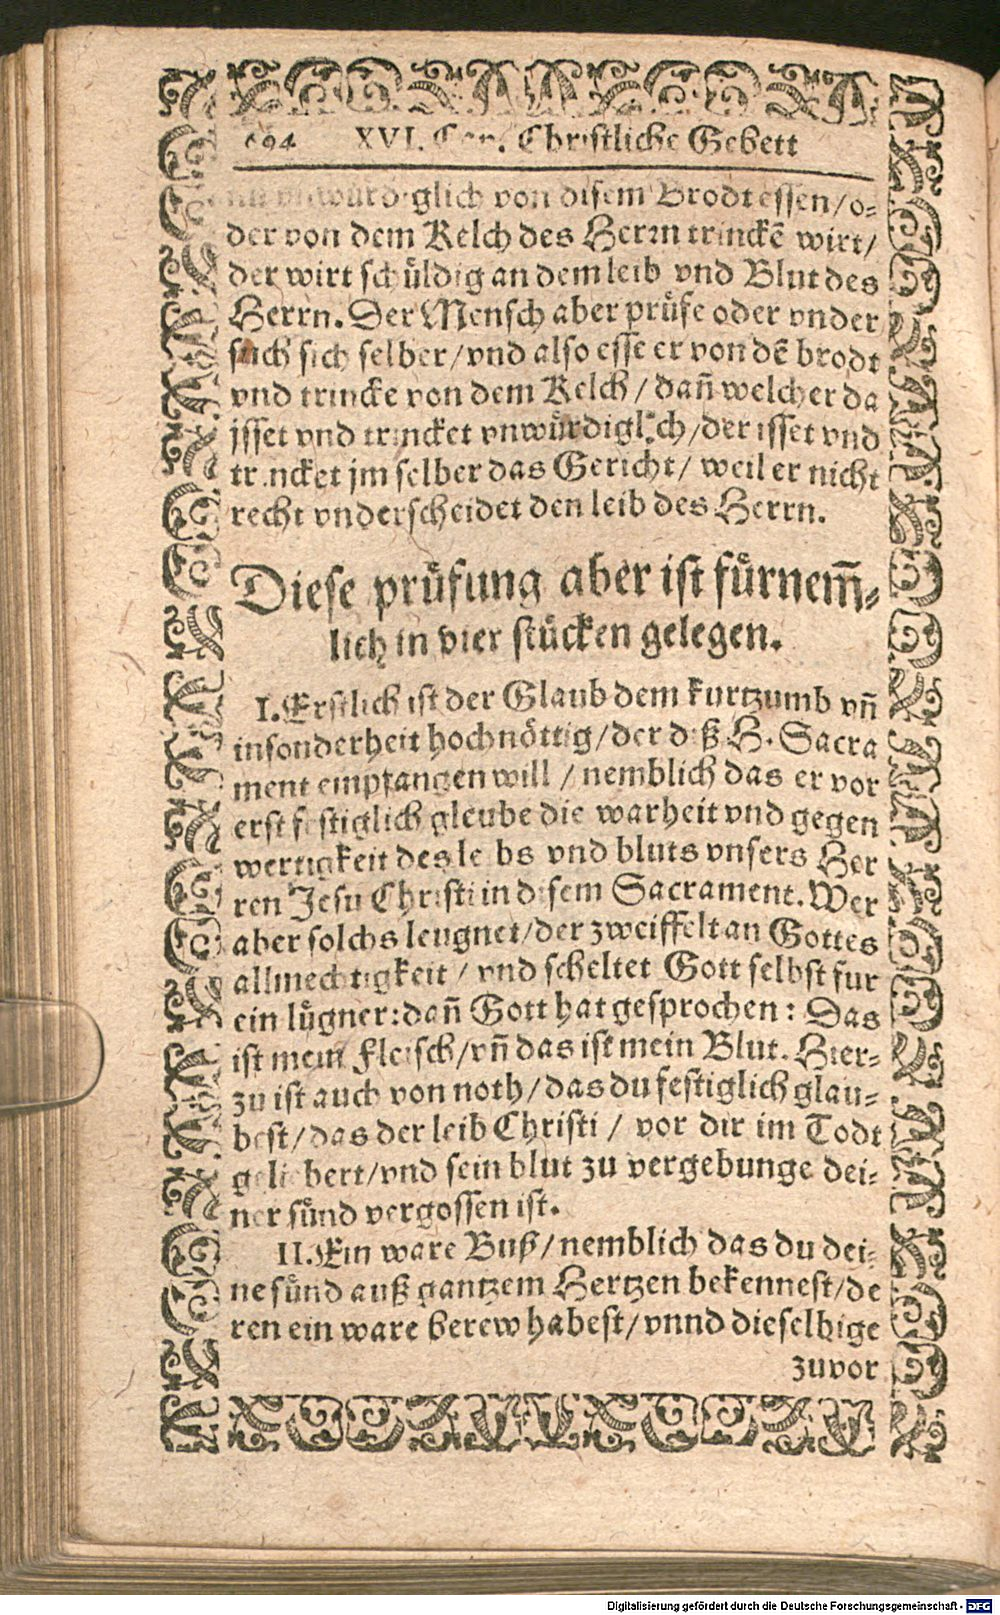 694 XVI. Cap. Christliche Gebett
vnwürdiglich von disem Brodt essen/o⸗
der von dem Kelch des Herrn trinckē wirt/
der wirt schüldig an dem leib vnd Blut des
Herrn. Der Mensch aber prüfe oder vnder
such sich selber/vnd also esse er von dē brodt
vnd trincke von dem Kelch/dañ welcher da
jsset vnd trincket vnwürdiglich/der isset vnd
trincket jm selber das Gericht/ weil er nicht
recht vnderscheidet den leib des Herrn.
Diese prüfung aber ist fürnem̃⸗
lich in vier stücken gelegen.
I. Erstlich ist der Glaub dem kurtzumb vñ
insonderheit hochnöttig/der diß H. Sacra
ment empfangen will / nemblich das er vor
erst festiglich gleube die warheit vnd gegen
wertigkeit des leibs vnd bluts vnsers Her
ren Jesu Christi in disem Sacrament. Wer
aber solchs leugnet/der zweiffelt an Gottes
allmechtigkeit / vnd scheltet Gott selbst fur
ein lügner: dañ Gott hat gesprochen: Das
ist mein Fleisch/vñ das ist mein Blut. Hier⸗
zu ist auch von noth/das du festiglich glau⸗
best/das der leib Christi / vor dir im Todt
geliebert/vnd sein blut zu vergebunge dei⸗
ner sünd vergossen ist.
II. Ein ware Buß/nemblich das du dei⸗
ne sünd auß gantzem Hertzen bekennest/de
ren ein ware berew habest/vnnd dieselbige
zuvor
Digitalisierung gefördert durch die Deutsche Forschungsgemeinschaft - DFG